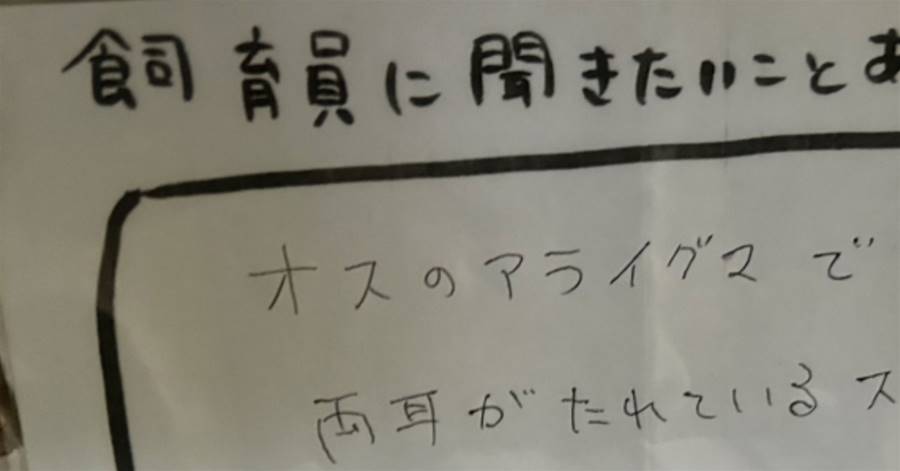 飼育員に聞きたいことあ
オスのアライグマで
両耳がたれているス